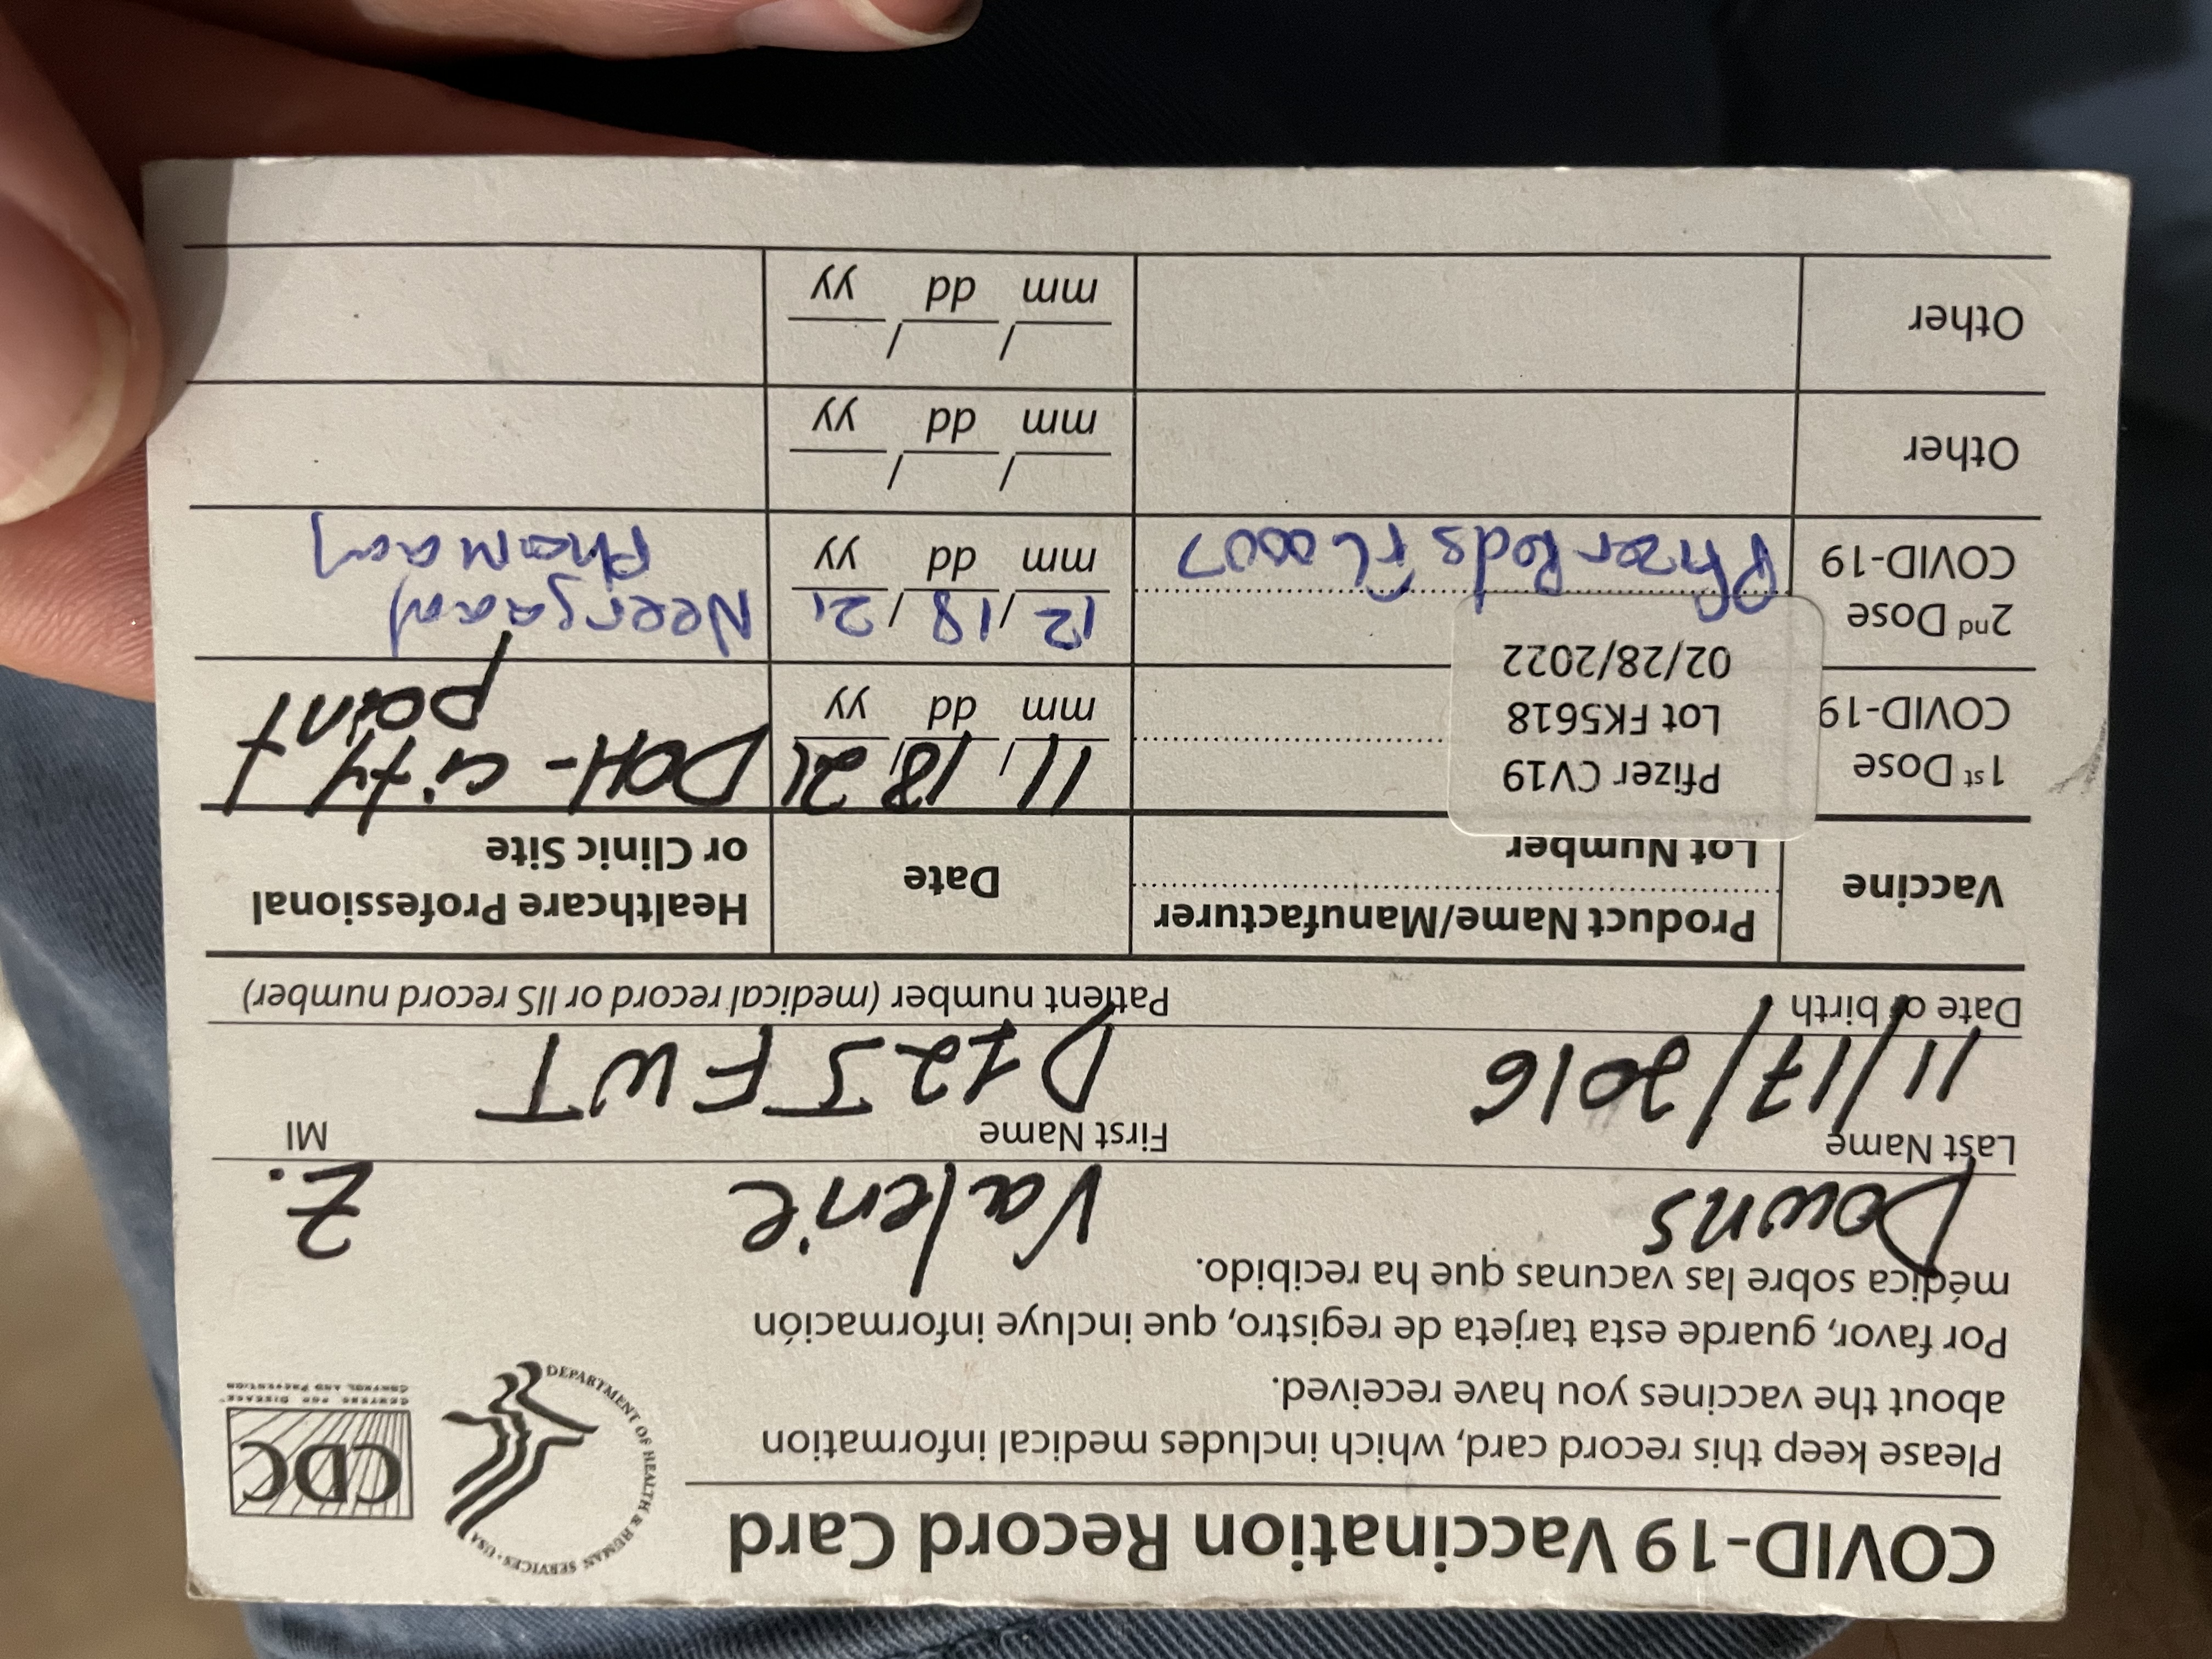 COVID-19 Vaccination Record Card
Please keep this record card, which includes medical information
about the vaccines you have received.
Por favor, guarde esta tarjeta de registro, que incluye información
médica sobre las vacunas que ha recibido.
DEPARTMENT OF HEALTH & HUMAN SERVICES · USA
CDC
CENTERS FOR DISEASE
CONTROL AND PREVENTION
Downs Valerie Z.
Last Name First Name MI
11/17/2016 D12JFWT
Date of birth Patient number (medical record or IIS record number)
Vaccine
Product Name/Manufacturer
Lot Number
Date
Healthcare Professional
or Clinic Site
1st Dose
COVID-19
Pfizer CV19
Lot FK5618
02/28/2022
11/18/21
mm dd yy
DOH - city
point
2nd Dose
COVID-19
Pfizer Peds FL0007
12/18/21
mm dd yy
Neergaard
Pharmacy
Other
/ /
mm dd yy
Other
/ /
mm dd yy